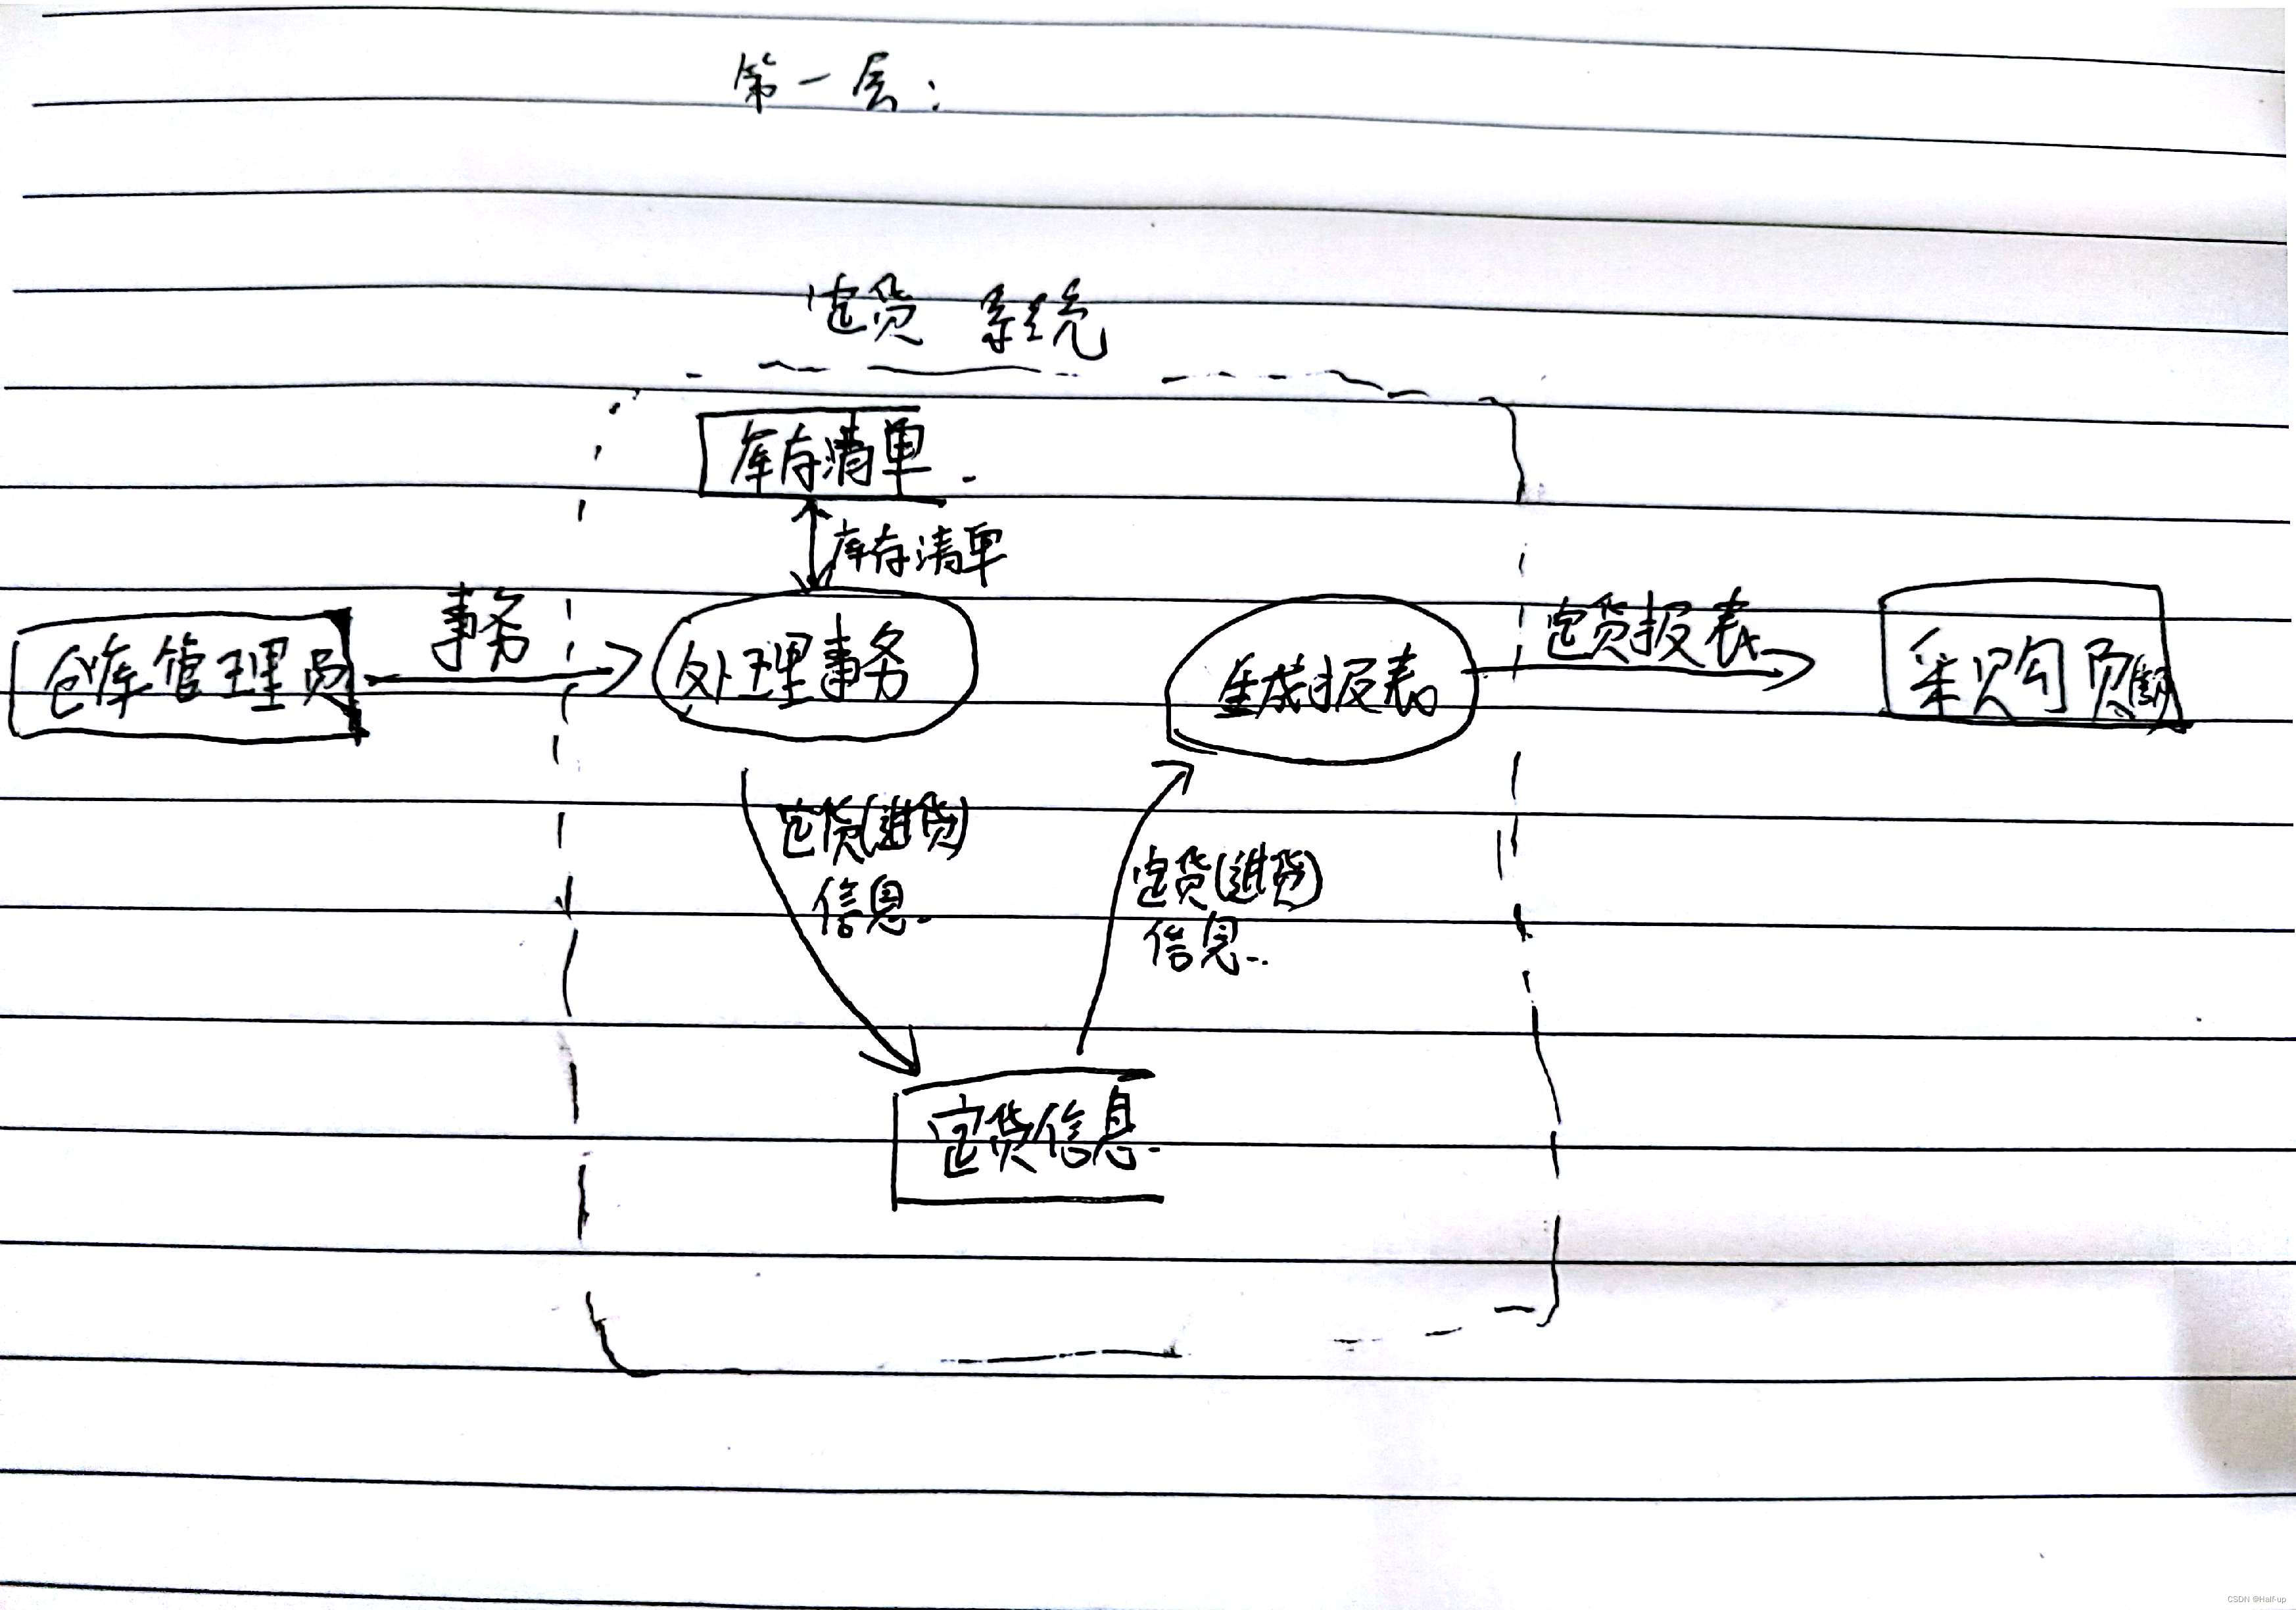 第一层：
定货 系统
库存清单
库存清单
仓库管理员
事务
处理事务
生成报表
定货报表
采购员
定货(进货)
信息
定货(进货)
信息
定货信息
CSDN @Half-up